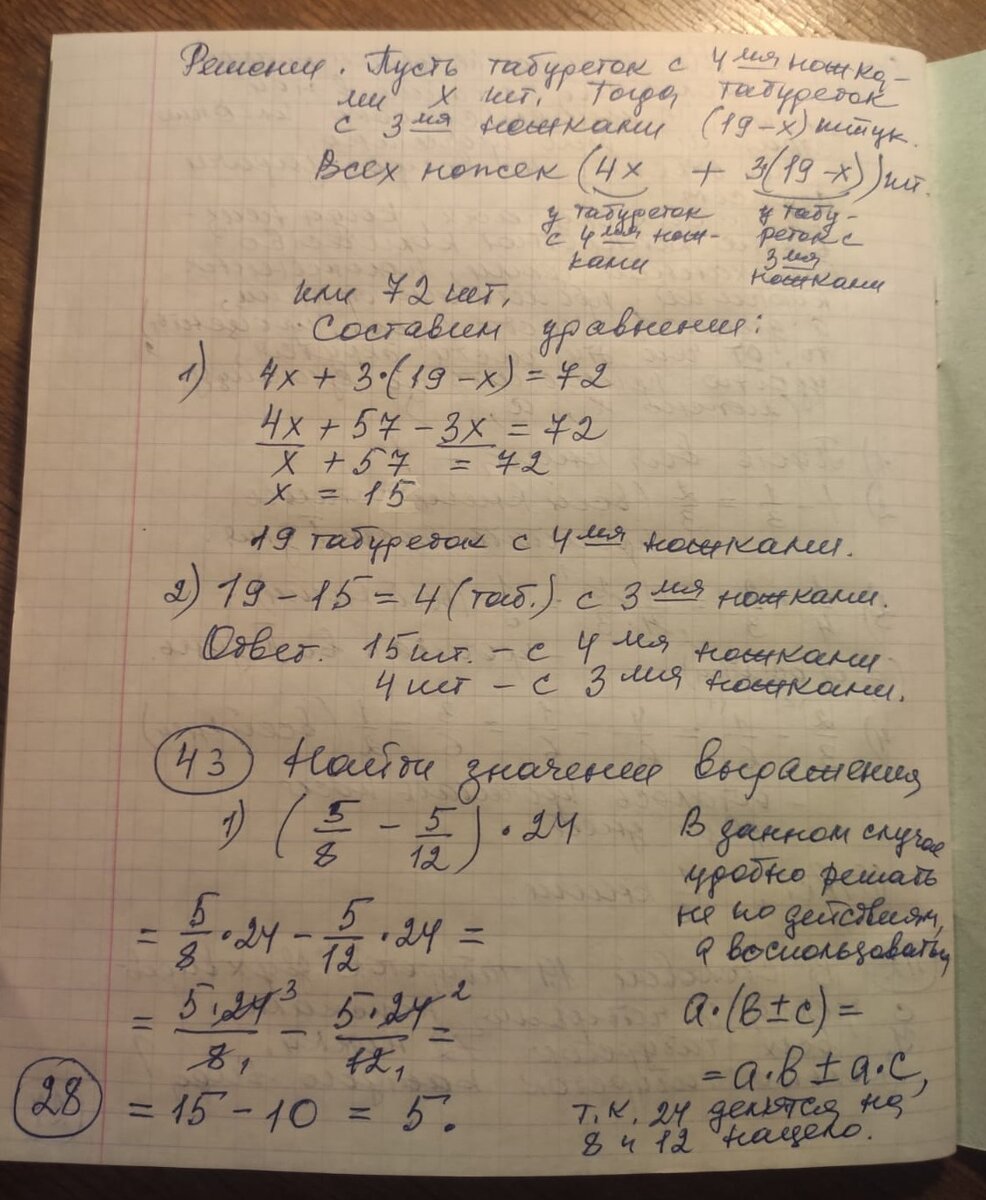 Решение. Пусть табуреток с 4мя ножка-
ми х шт. Тогда табуреток
с 3мя ножками (19-х) штук.
Всех ножек (4х + 3(19-х)) шт.
у табуреток
с 4мя нож-
ками
у табу-
реток с
3мя
ножками
или 72 шт.
Составим уравнение:
1) 4х + 3·(19-х) = 72
4х + 57 - 3х = 72
х + 57 = 72
х = 15
19 табуреток с 4мя ножками.
2) 19 - 15 = 4 (таб.) с 3мя ножками.
Ответ. 15 шт. - с 4мя ножками
4 шт - с 3мя ножками.
43 Найти значение выражения
1) (5/8 - 5/12) · 24
= 5/8 · 24 - 5/12 · 24 =
= 5·24³/8₁ - 5·24²/12₁ =
28 = 15 - 10 = 5.
В данном случае
удобно решать
не по действиям,
а воспользоваться
а·(в±с) =
= а·в ± а·с,
т.к. 24 делятся на
8 и 12 нацело.